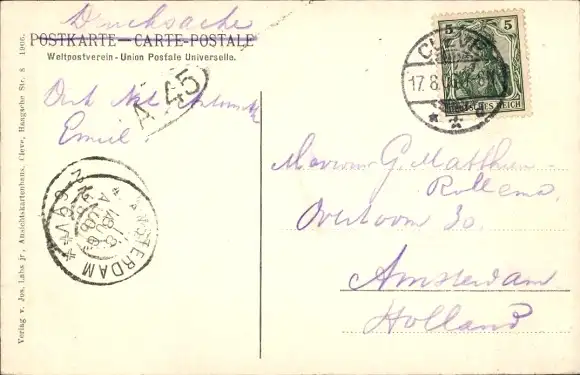 Drucksache
POSTKARTE — CARTE-POSTALE
Weltpostverein - Union Postale Universelle.
A 45
Emiel.
Verlag v. Jos. Labs jr., Ansichtskartenhaus, Cleve, Haagsche Str. 8 1906.
AMSTERDAM
5 5
CLEVE
17.8.06
DEUTSCHES REICH
Mevrouw G. Matthes-
Rollema.
Overtoom 30.
Amsterdam
Holland